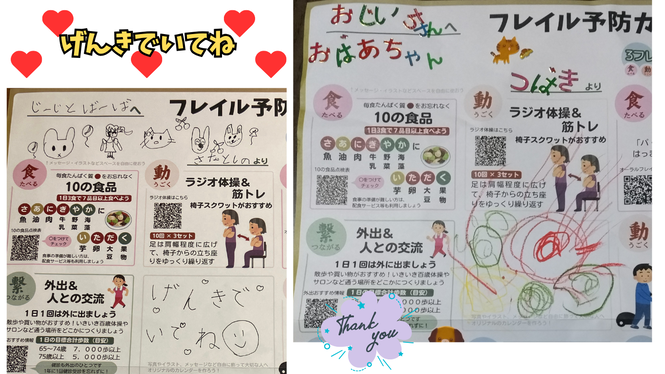 げんきでいてね
じーじとばーばへ
フレイル予防
より
食
たべる
毎食たんぱく質●をお忘れなく
10の食品
1日3食で7品目以上食べよう
さあにぎやかに
魚油肉牛野海
乳菜藻
いただく
芋卵大果
豆物
動
うごく
ラジオ体操はこちら
ラジオ体操&
筋トレ
椅子スクワットがおすすめ
10回×3セット
足は肩幅程度に広げ
て、椅子からの立ち座
りをゆっくり繰り返す
繋
つながる
外出&
人との交流
1日1回は外に出ましょう
散歩や買い物がおすすめ!いきいき百歳体操や
サロンなど通う場所をどこかにつくりましょう
おすすめ情報
1日の目標合計歩数(目安)
65~74歳 7,000歩以上
75歳以上 5,000歩以上
げんきで
いてね
おじいさんへ
おばあちゃん
フレイル予防カ
つばきより
食
たべる
毎食たんぱく質●をお忘れなく
10の食品
1日3食で7品目以上食べよう
さあにぎやかに
魚油肉牛野海
乳菜藻
いただく
芋卵大果
豆物
動
うごく
ラジオ体操はこちら
ラジオ体操&
筋トレ
椅子スクワットがおすすめ
10回×3セット
足は肩幅程度に広げ
て、椅子からの立ち座
りをゆっくり繰り返す
繋
つながる
外出&
人との交流
1日1回は外に出ましょう
散歩や買い物がおすすめ!いきいき百歳体操や
サロンなど通う場所をどこかにつくりましょう
000歩以上
000歩以上
食
たべる
動
うごく
Thank
you